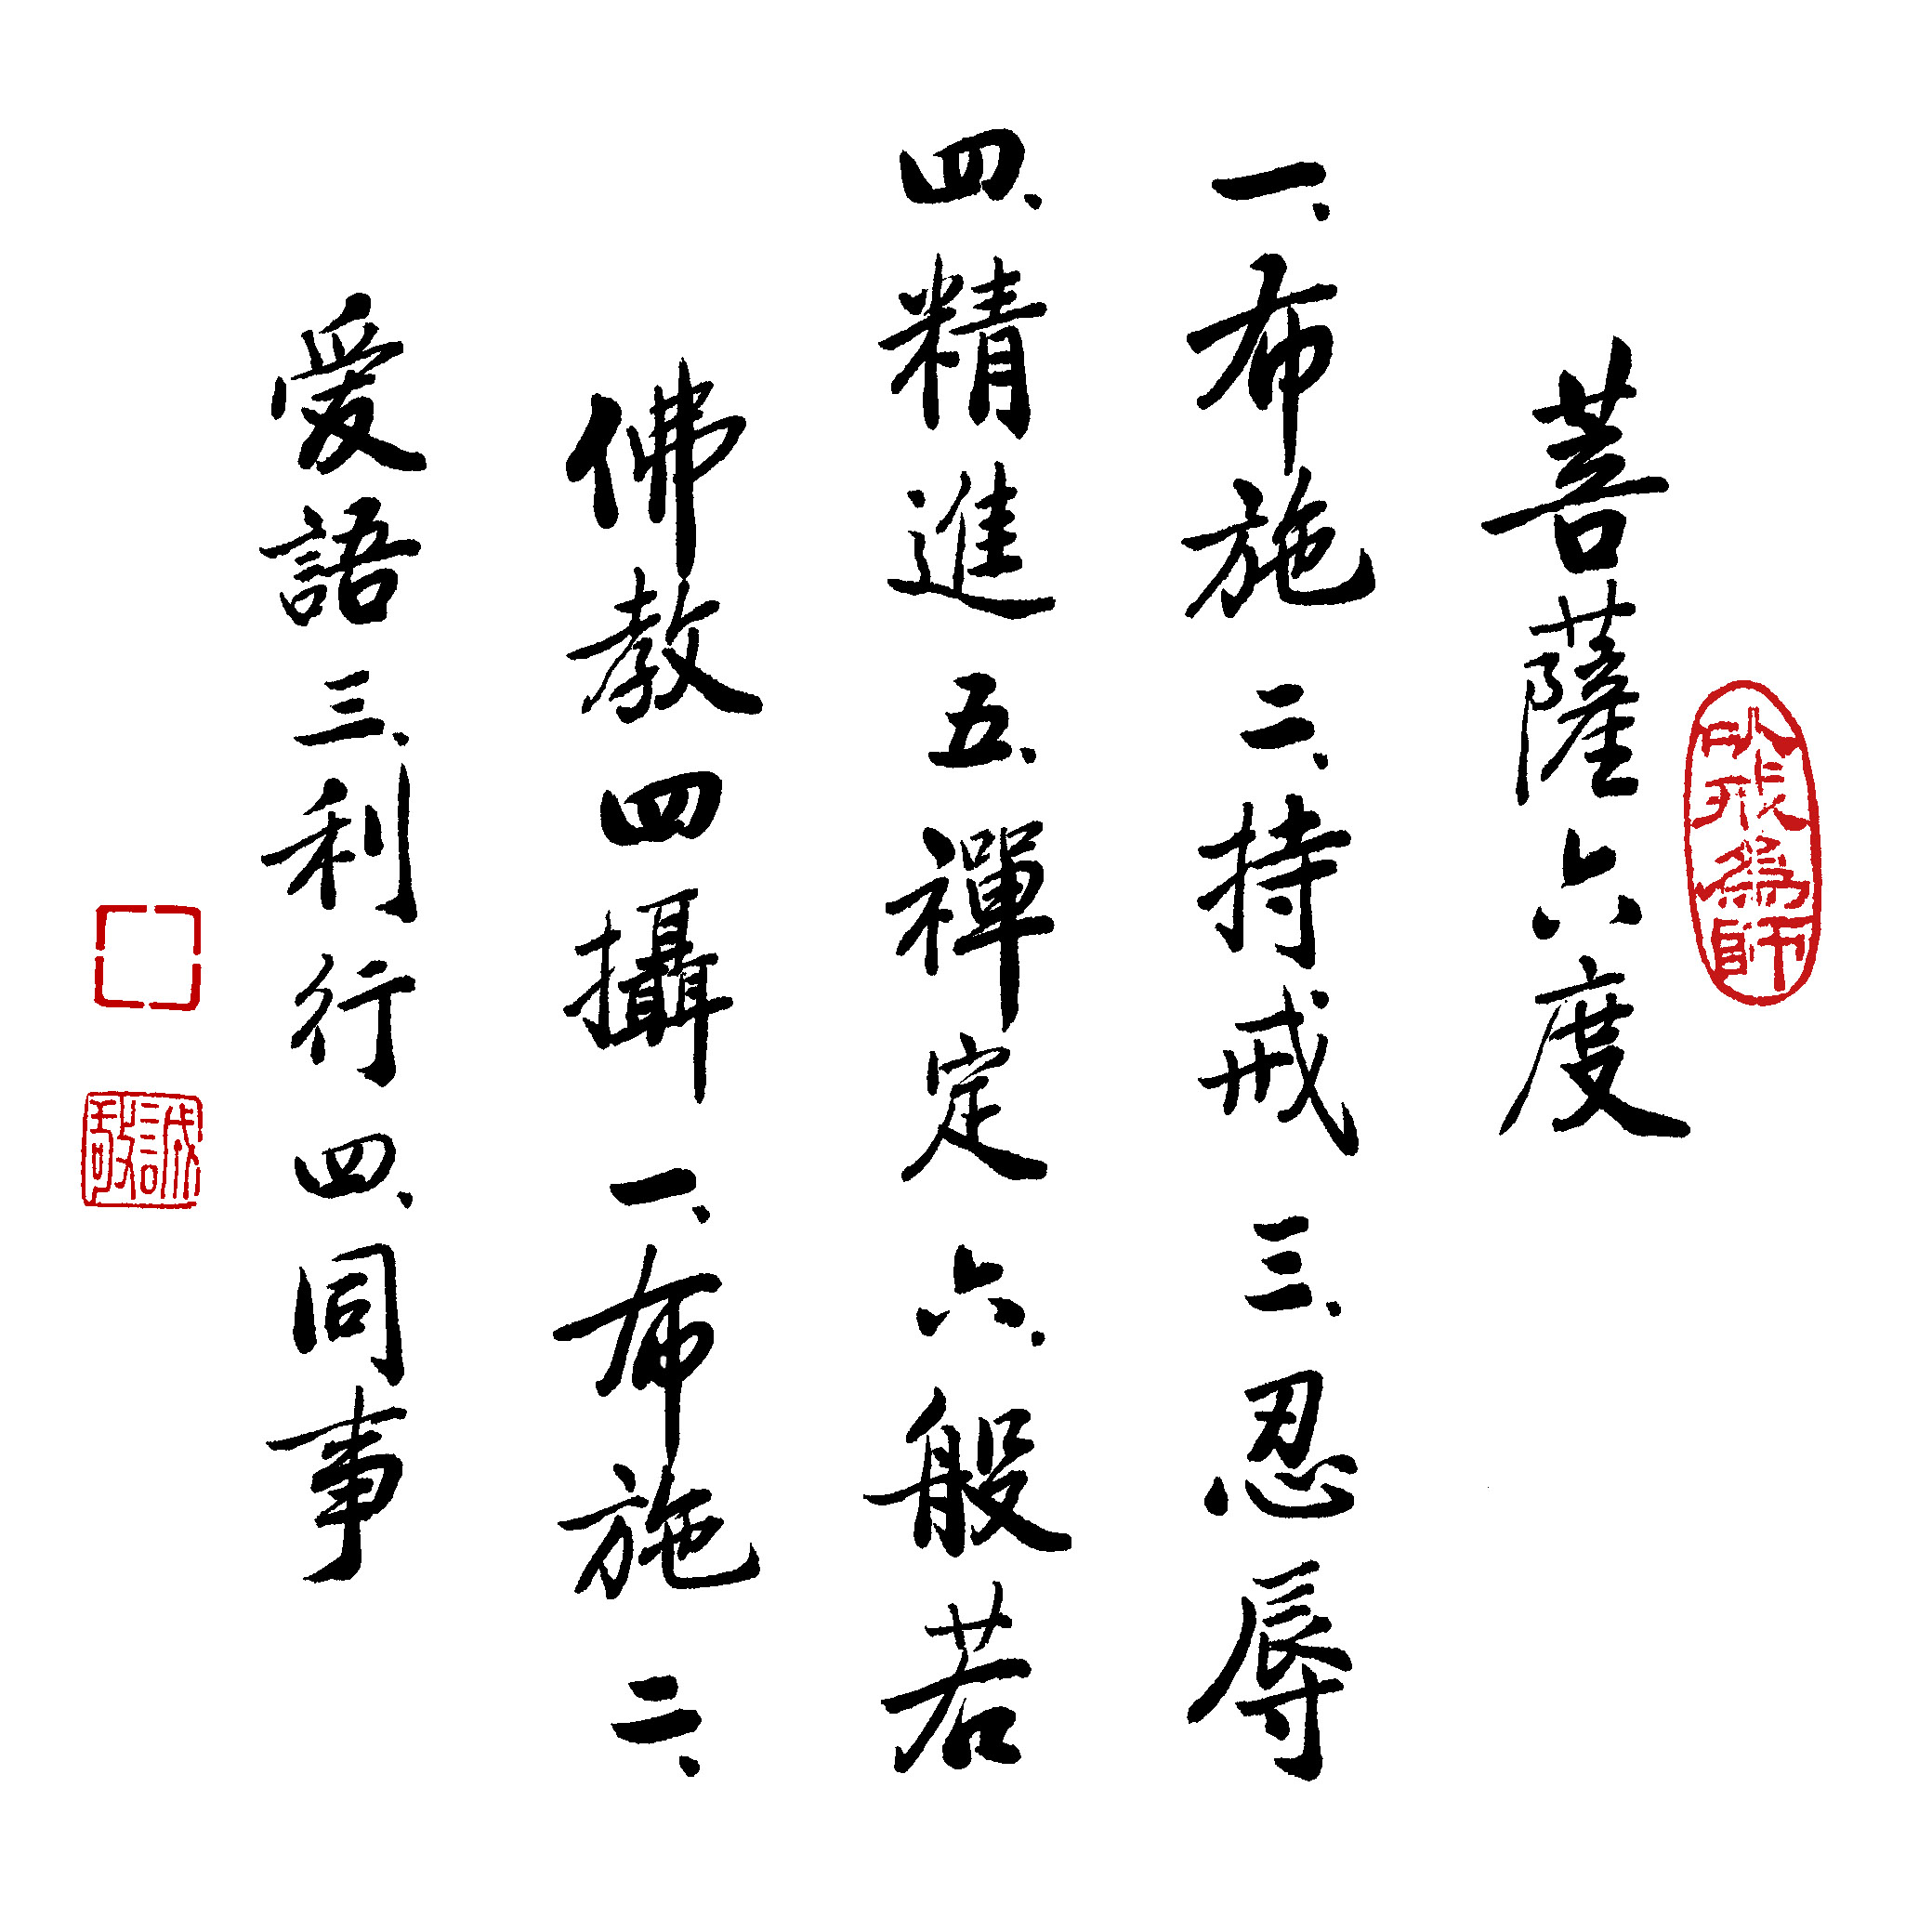 以戒為師
菩薩六度
一、布施 二、持戒 三、忍辱
四、精進 五、禪定 六、般若
佛教四攝 一、布施 二、
愛語 三、利行 四、同事